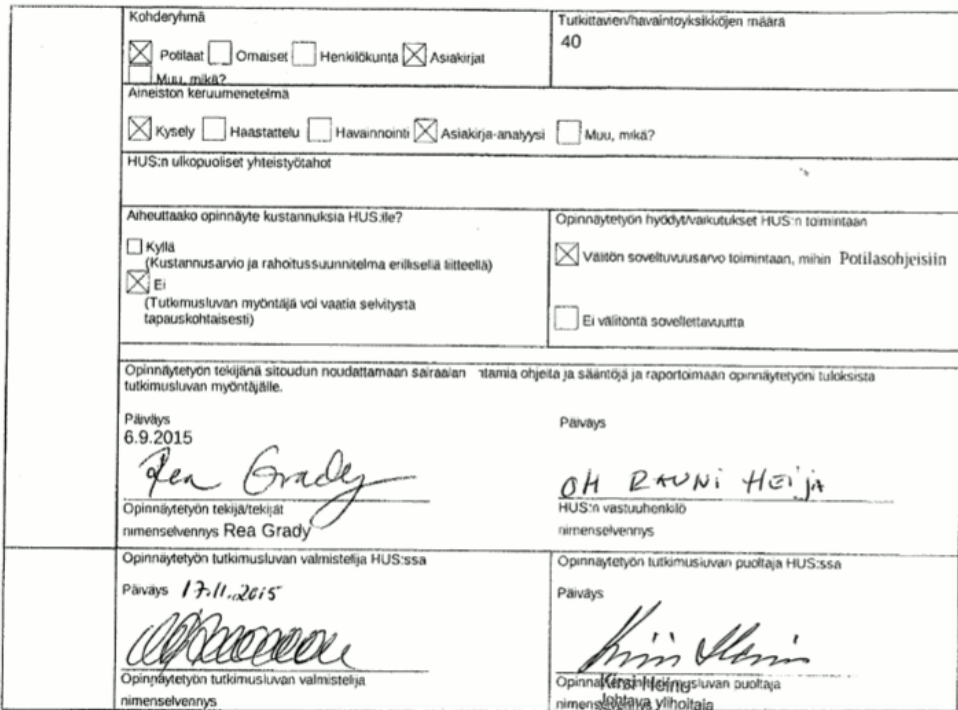 Kohderyhmä
Potilaat Omaiset Henkilökunta Asiakirjat
Muu, mikä?
Tutkittavien/havaintoyksikköjen määrä
40
Aineiston keruumenetelmä
Kysely Haastattelu Havainnointi Asiakirja-analyysi Muu, mikä?
HUS:n ulkopuoliset yhteistyötahot
Aiheuttaako opinnäyte kustannuksia HUS:lle?
Kyllä
(Kustannusarvio ja rahoitussuunnitelma erillisellä liitteellä)
Ei
(Tutkimusluvan myöntäjä voi vaatia selvitystä
tapauskohtaisesti)
Opinnäytetyön hyödyt/vaikutukset HUS:n toimintaan
Välitön soveltuvuusarvo toimintaan, mihin Potilasohjeisiin
Ei välitöntä sovellettavuutta
Opinnäytetyön tekijänä sitoudun noudattamaan sairaalan ntamia ohjeita ja sääntöjä ja raportoimaan opinnäytetyöni tuloksista
tutkimusluvan myöntäjälle.
Päiväys
6.9.2015
Rea Grady
Opinnäytetyön tekijä/tekijät
nimenselvennys Rea Grady
Päiväys
OH RAUNI HEIJA
HUS:n vastuuhenkilö
nimenselvennys
Opinnäytetyön tutkimusluvan valmistelija HUS:ssa
Päiväys 17.11.2015
Opinnäytetyön tutkimusluvan valmistelija
nimenselvennys
Opinnäytetyön tutkimusluvan puoltaja HUS:ssa
Päiväys
Kirsi Heino
Opinnäytetyön tutkimusluvan puoltaja
Kirsi Heino
nimenselvennys
Johtava ylihoitaja